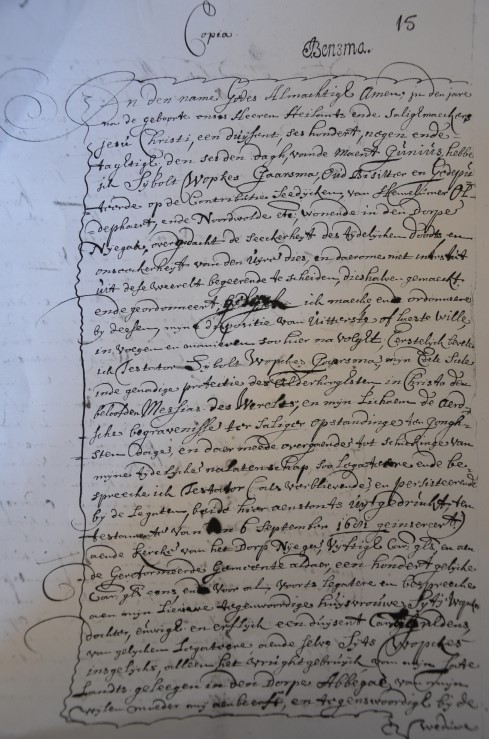 Copia
15
Bensma.
In den name Godes Almachtigh Amen, in den jare
na de geboorte onses Heeren Heilants ende Salighmaeckers
Jesu Christi, een duysent, ses hondert, negen ende
taghtigh, den sesden dagh, vande Maent Junius, hebbe
ick Sybolt Wopkes Jaarsma, Oud Bysitter en Gedepu
teerde op de Contributie Seedycken, van Hemelumer Ol
dephaert, ende Noordwolde etc, wonende in den Dorpe
Nyega, overdacht de seeckerheyt des tydelycken doodts en
onseeckerheyt van den uyre dies, en daeromme niet intestat
uit dese weerelt begeerende te scheiden, dieshalven gemaeckt
ende geordonneert ick maecke ende ordonneere
by deesen, myne dispositie van Uitterste of laeste wille
in voegen en manieren soo hier na volght. Eerstelyck bevele
ick Testator Sybolt Wopckes Jaarsma, mijn Siele
inde genadige protectie des Alderhoghsten in Christo den
beloofden Messias des Werelts, en mijn Lichaem de Aerd
sche begravenisse ter Saliger opstandinge ten Jongh
sten daige, en daermede overgaende tot schickinge van
myne tydelycke nalatenschap, soo Legatere ende be
spreecke ick Testator (als verblievende en persisteerende
by de Legaten, beide hier aenstonts uitgedruckt, en
testamente van den 6 September 1681 geinsereert)
aende Kercke van het Dorp Nyega, vyftigh Car. gls en aen
de Gereformeerde Gemeente aldaer, een hondert gelycke
Car. gls eens, ende Vooral, voorts Legatere en bespreecke
aen mijn Lieve tegenwoordige huysvrouwe Syts Wopkes
dochter, eeuwigh en erflyck een duysent Caroli guldens
van gelycken Legatere aende selve Syts Wopckes
insgelyck, alleen het vruchtgebruyck van mijn Sate
Landts geleegen in den Dorpe Abbega, van mijn
wylen moeder my aenbeerft, en tegenwoordigh by de
Weduwe